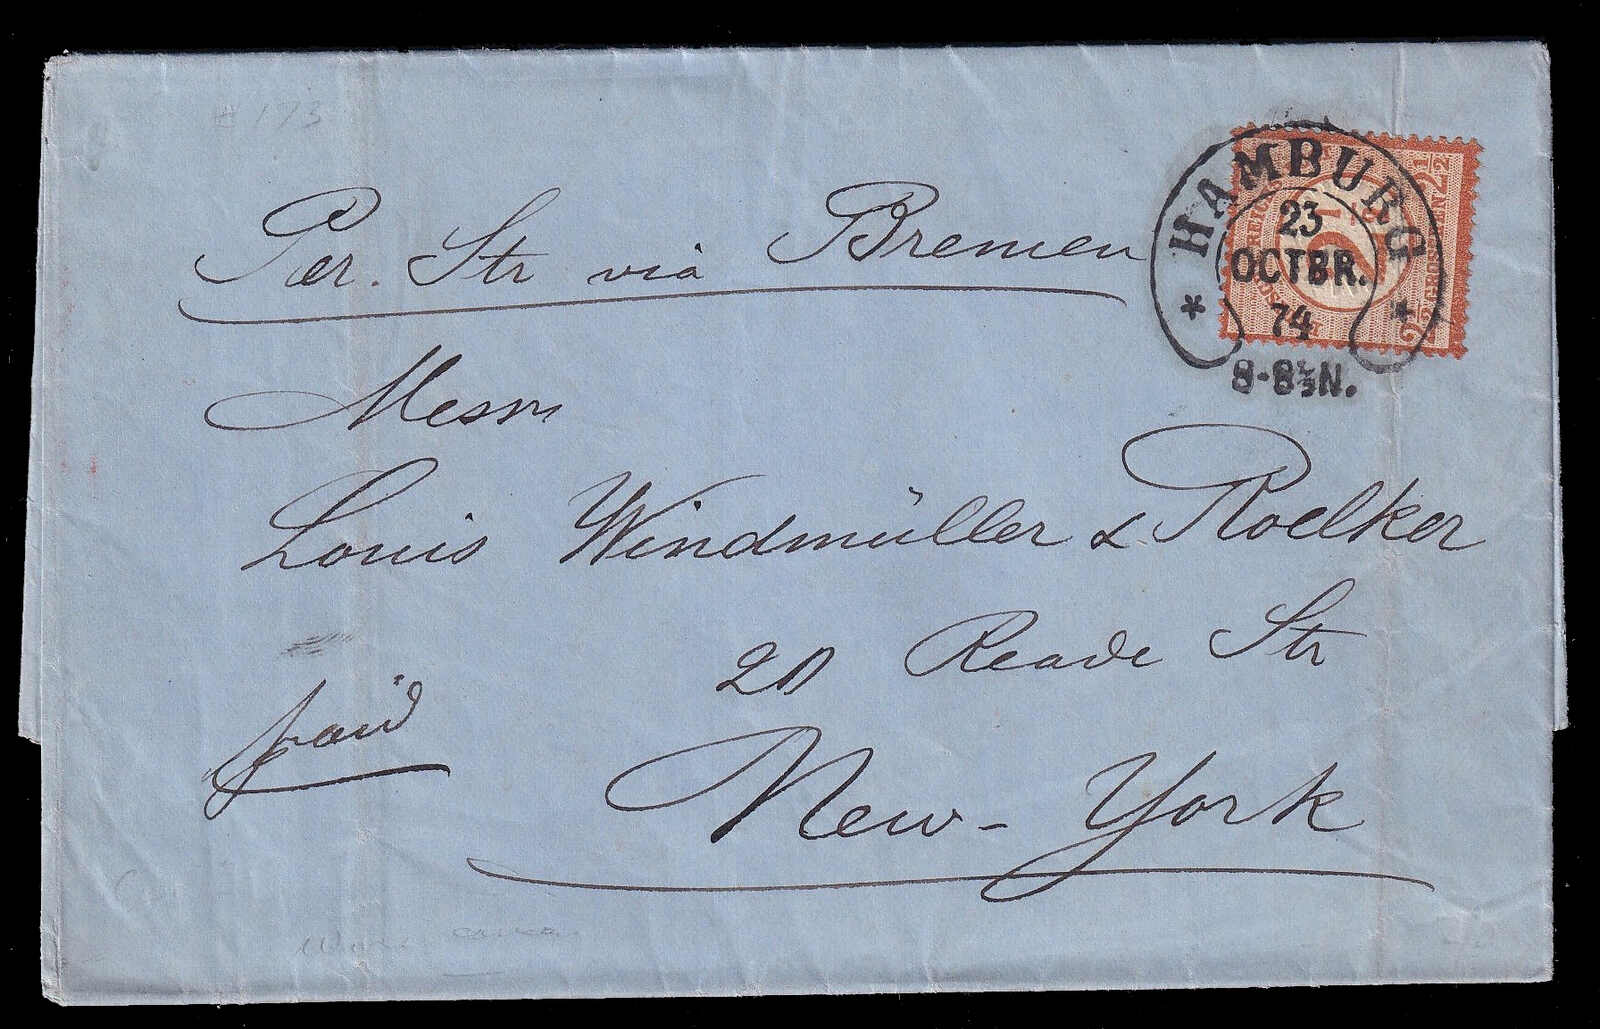 Per. Str via Bremen
HAMBURG
23
OCTBR.
74
8-8½N.
2½
2½
Messrs
Louis Windmüller & Roelker
20 Reade Str
paid
New-York